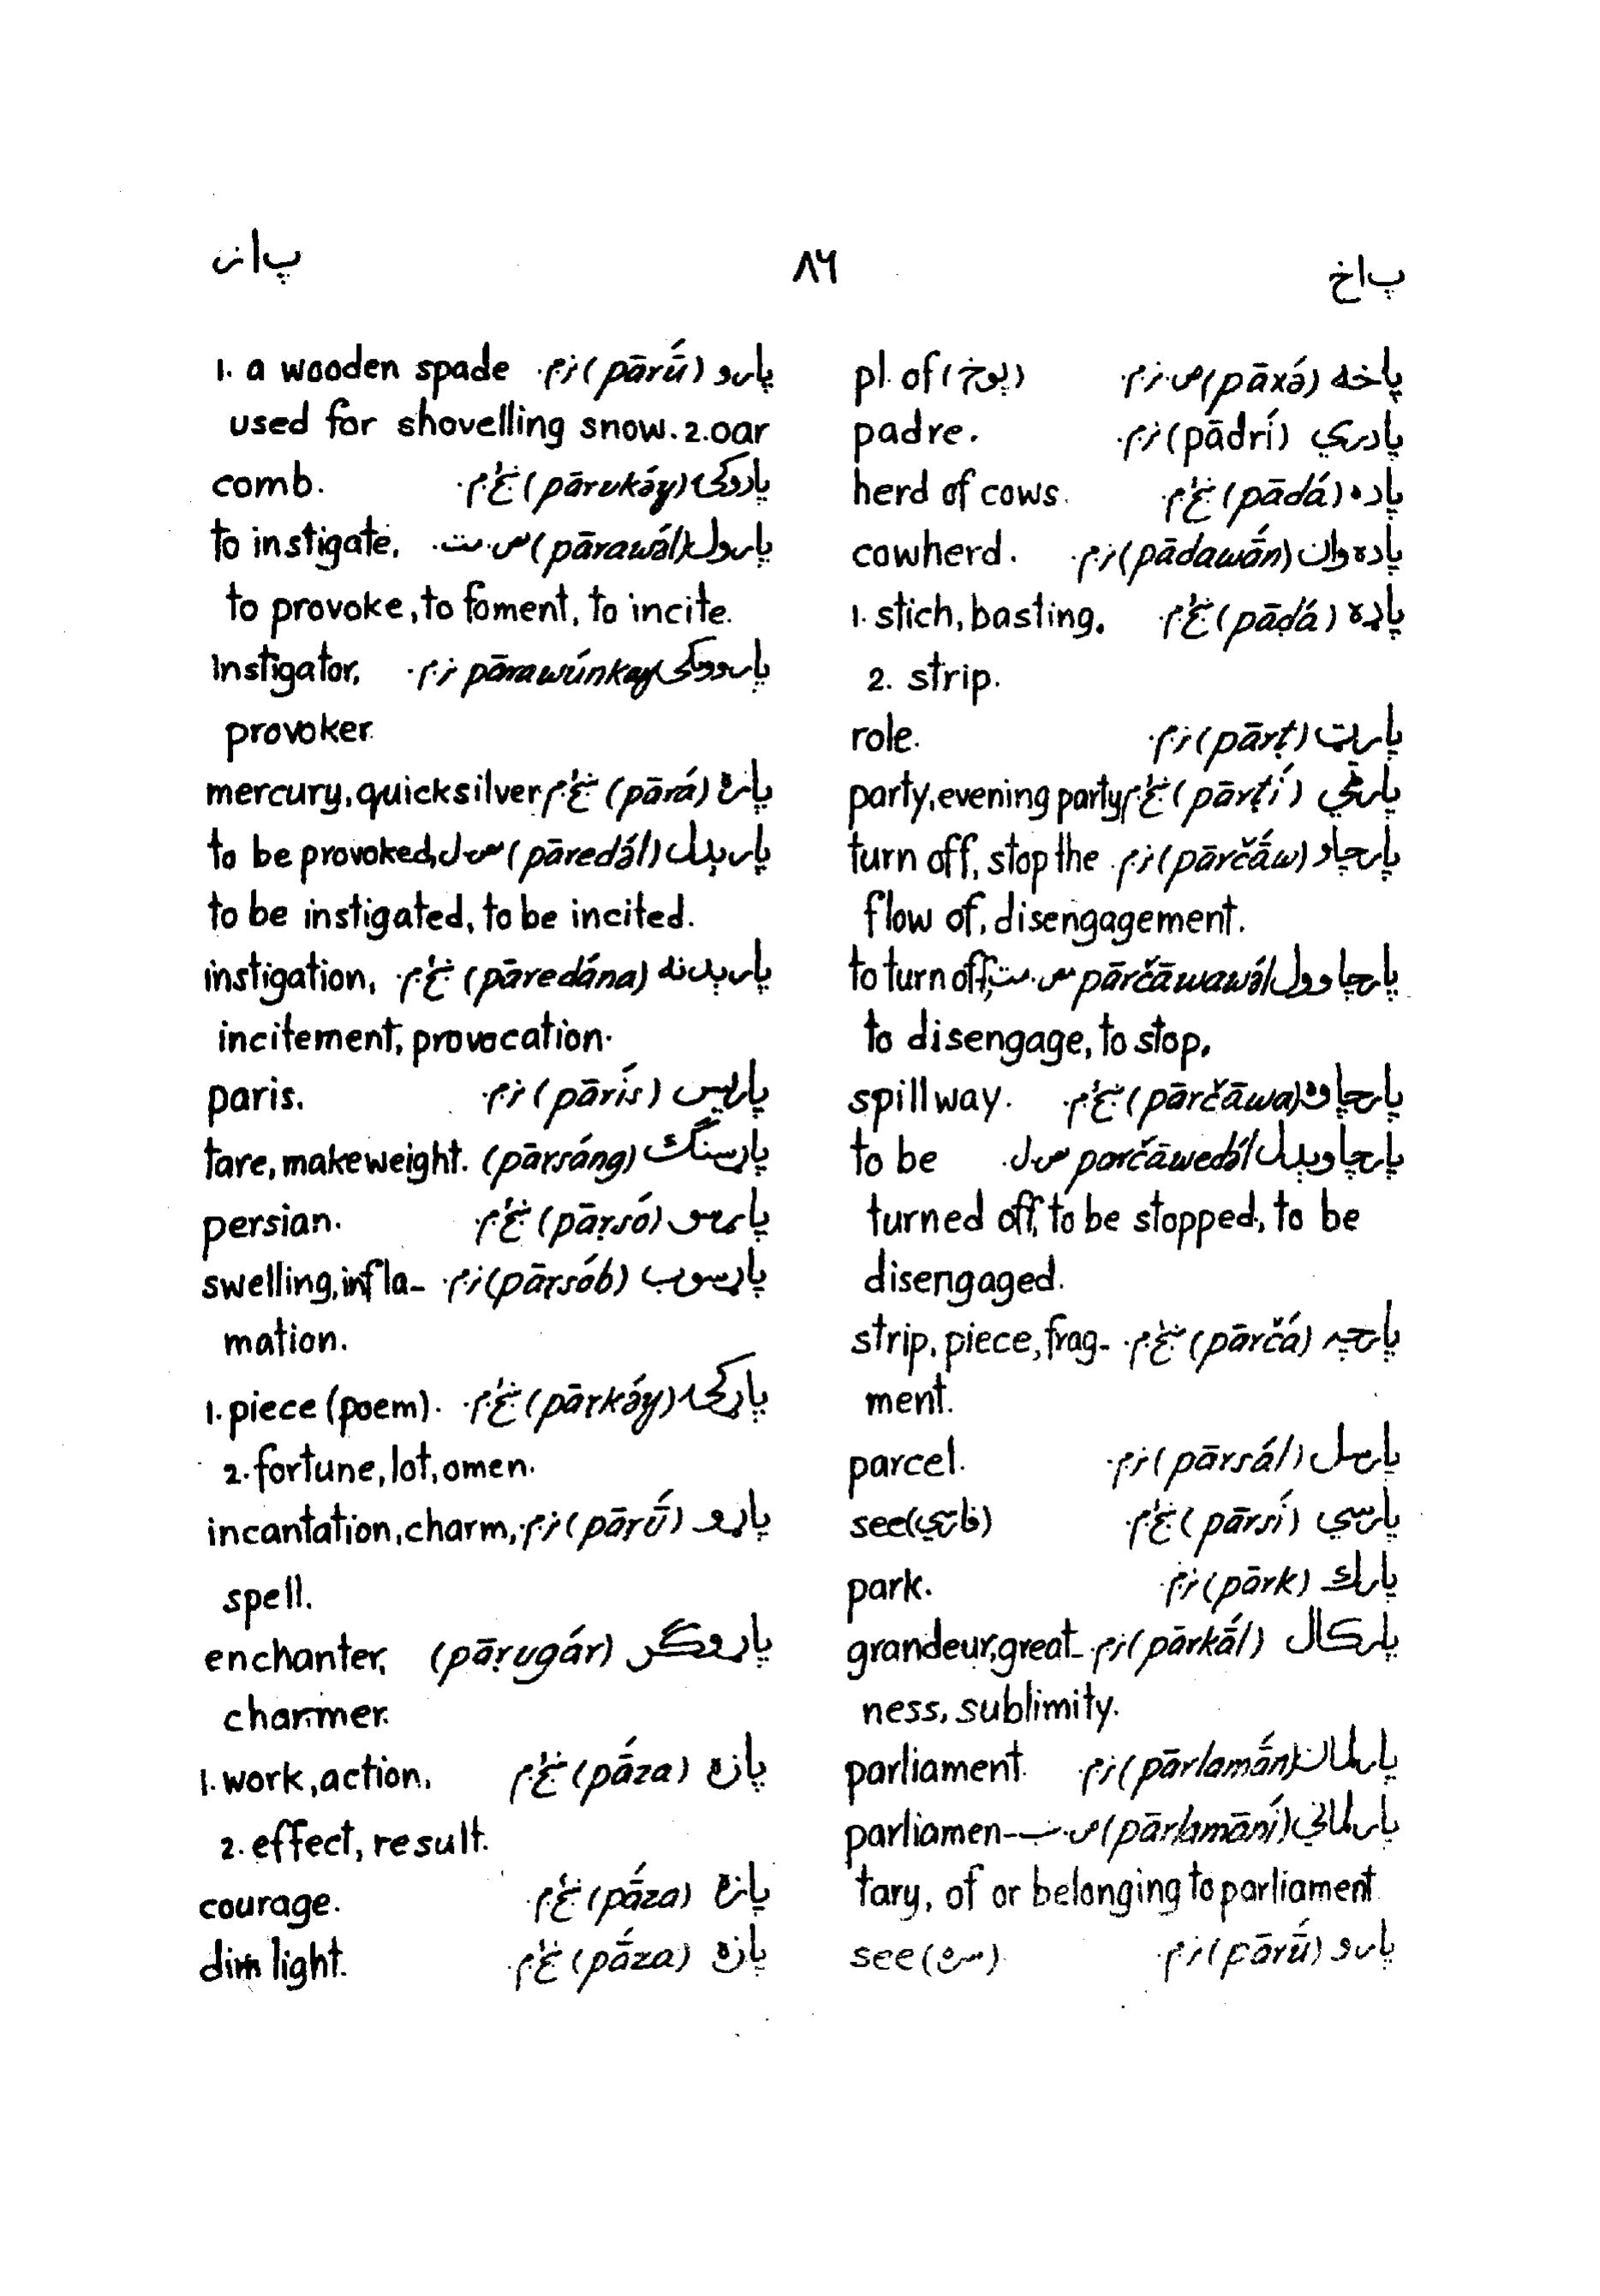 پاخ
۸۶
پاز
پاخه (pāxə́) ص.ز.م. pl. of (پوخ)
پادري (pādrí) ز.م. padre.
پاده (pādá) ځ.م. herd of cows.
پاده‌وان (pādawā́n) ز.م. cowherd.
پاډه (pāḍá) ځ.م. 1. stich, basting.
2. strip.
پارټ (pārṭ) ز.م. role.
پارټي (pārṭí) ځ.م. party, evening party
پارچاو (pārčā́w) ز.م. turn off, stop the
flow of, disengagement.
پارچاوول pārčāwawə́l ص.ت. to turn off,
to disengage, to stop.
پارچاوه (pārčā́wa) ځ.م. spillway.
پارچاوېدل parčāwedə́l ص.ل. to be
turned off, to be stopped, to be
disengaged.
پارچه (pārčá) ځ.م. strip, piece, frag-
ment.
پارسل (pārsál) ز.م. parcel.
پارسي (pārsí) ځ.م. see (فارسي)
پارك (pārk) ز.م. park.
پارکال (pārkā́l) ز.م. grandeur, great-
ness, sublimity.
پارلمان (pārlamā́n) ز.م. parliament.
پارلماني (pārlamāní) ص. parliamen-
tary, of or belonging to parliament
پارو (pārū́) ز.م. see
پارو (pārū́) ز.م. 1. a wooden spade
used for shovelling snow. 2. oar
پاروکۍ (pārukə́y) ځ.م. comb.
پارول (pārawə́l) ص.ت. to instigate,
to provoke, to foment, to incite.
پاروونکی pārawúnkay ز.م. Instigator,
provoker.
پاره (pārá) ځ.م. mercury, quicksilver
پارېدل (pāredə́l) ص.ل. to be provoked,
to be instigated, to be incited.
پارېدنه (pāredə́na) ځ.م. instigation,
incitement, provocation.
پاريس (pārís) ز.م. paris.
پاړسنګ (pāṛsáng) tare, makeweight.
پاړسو (pāṛsó) ځ.م. persian.
پاړسوب (pāṛsób) ز.م. swelling, infla-
mation.
پاړکۍ (pāṛkə́y) ځ.م. 1. piece (poem).
2. fortune, lot, omen.
پاړو (pāṛū́) ز.م. incantation, charm,
spell.
پاړوګر (pāṛugár) enchanter,
charmer.
پازه (pā́za) ځ.م. 1. work, action.
2. effect, result.
پازه (pā́za) ځ.م. courage.
پازه (pā́za) ځ.م. dim light.